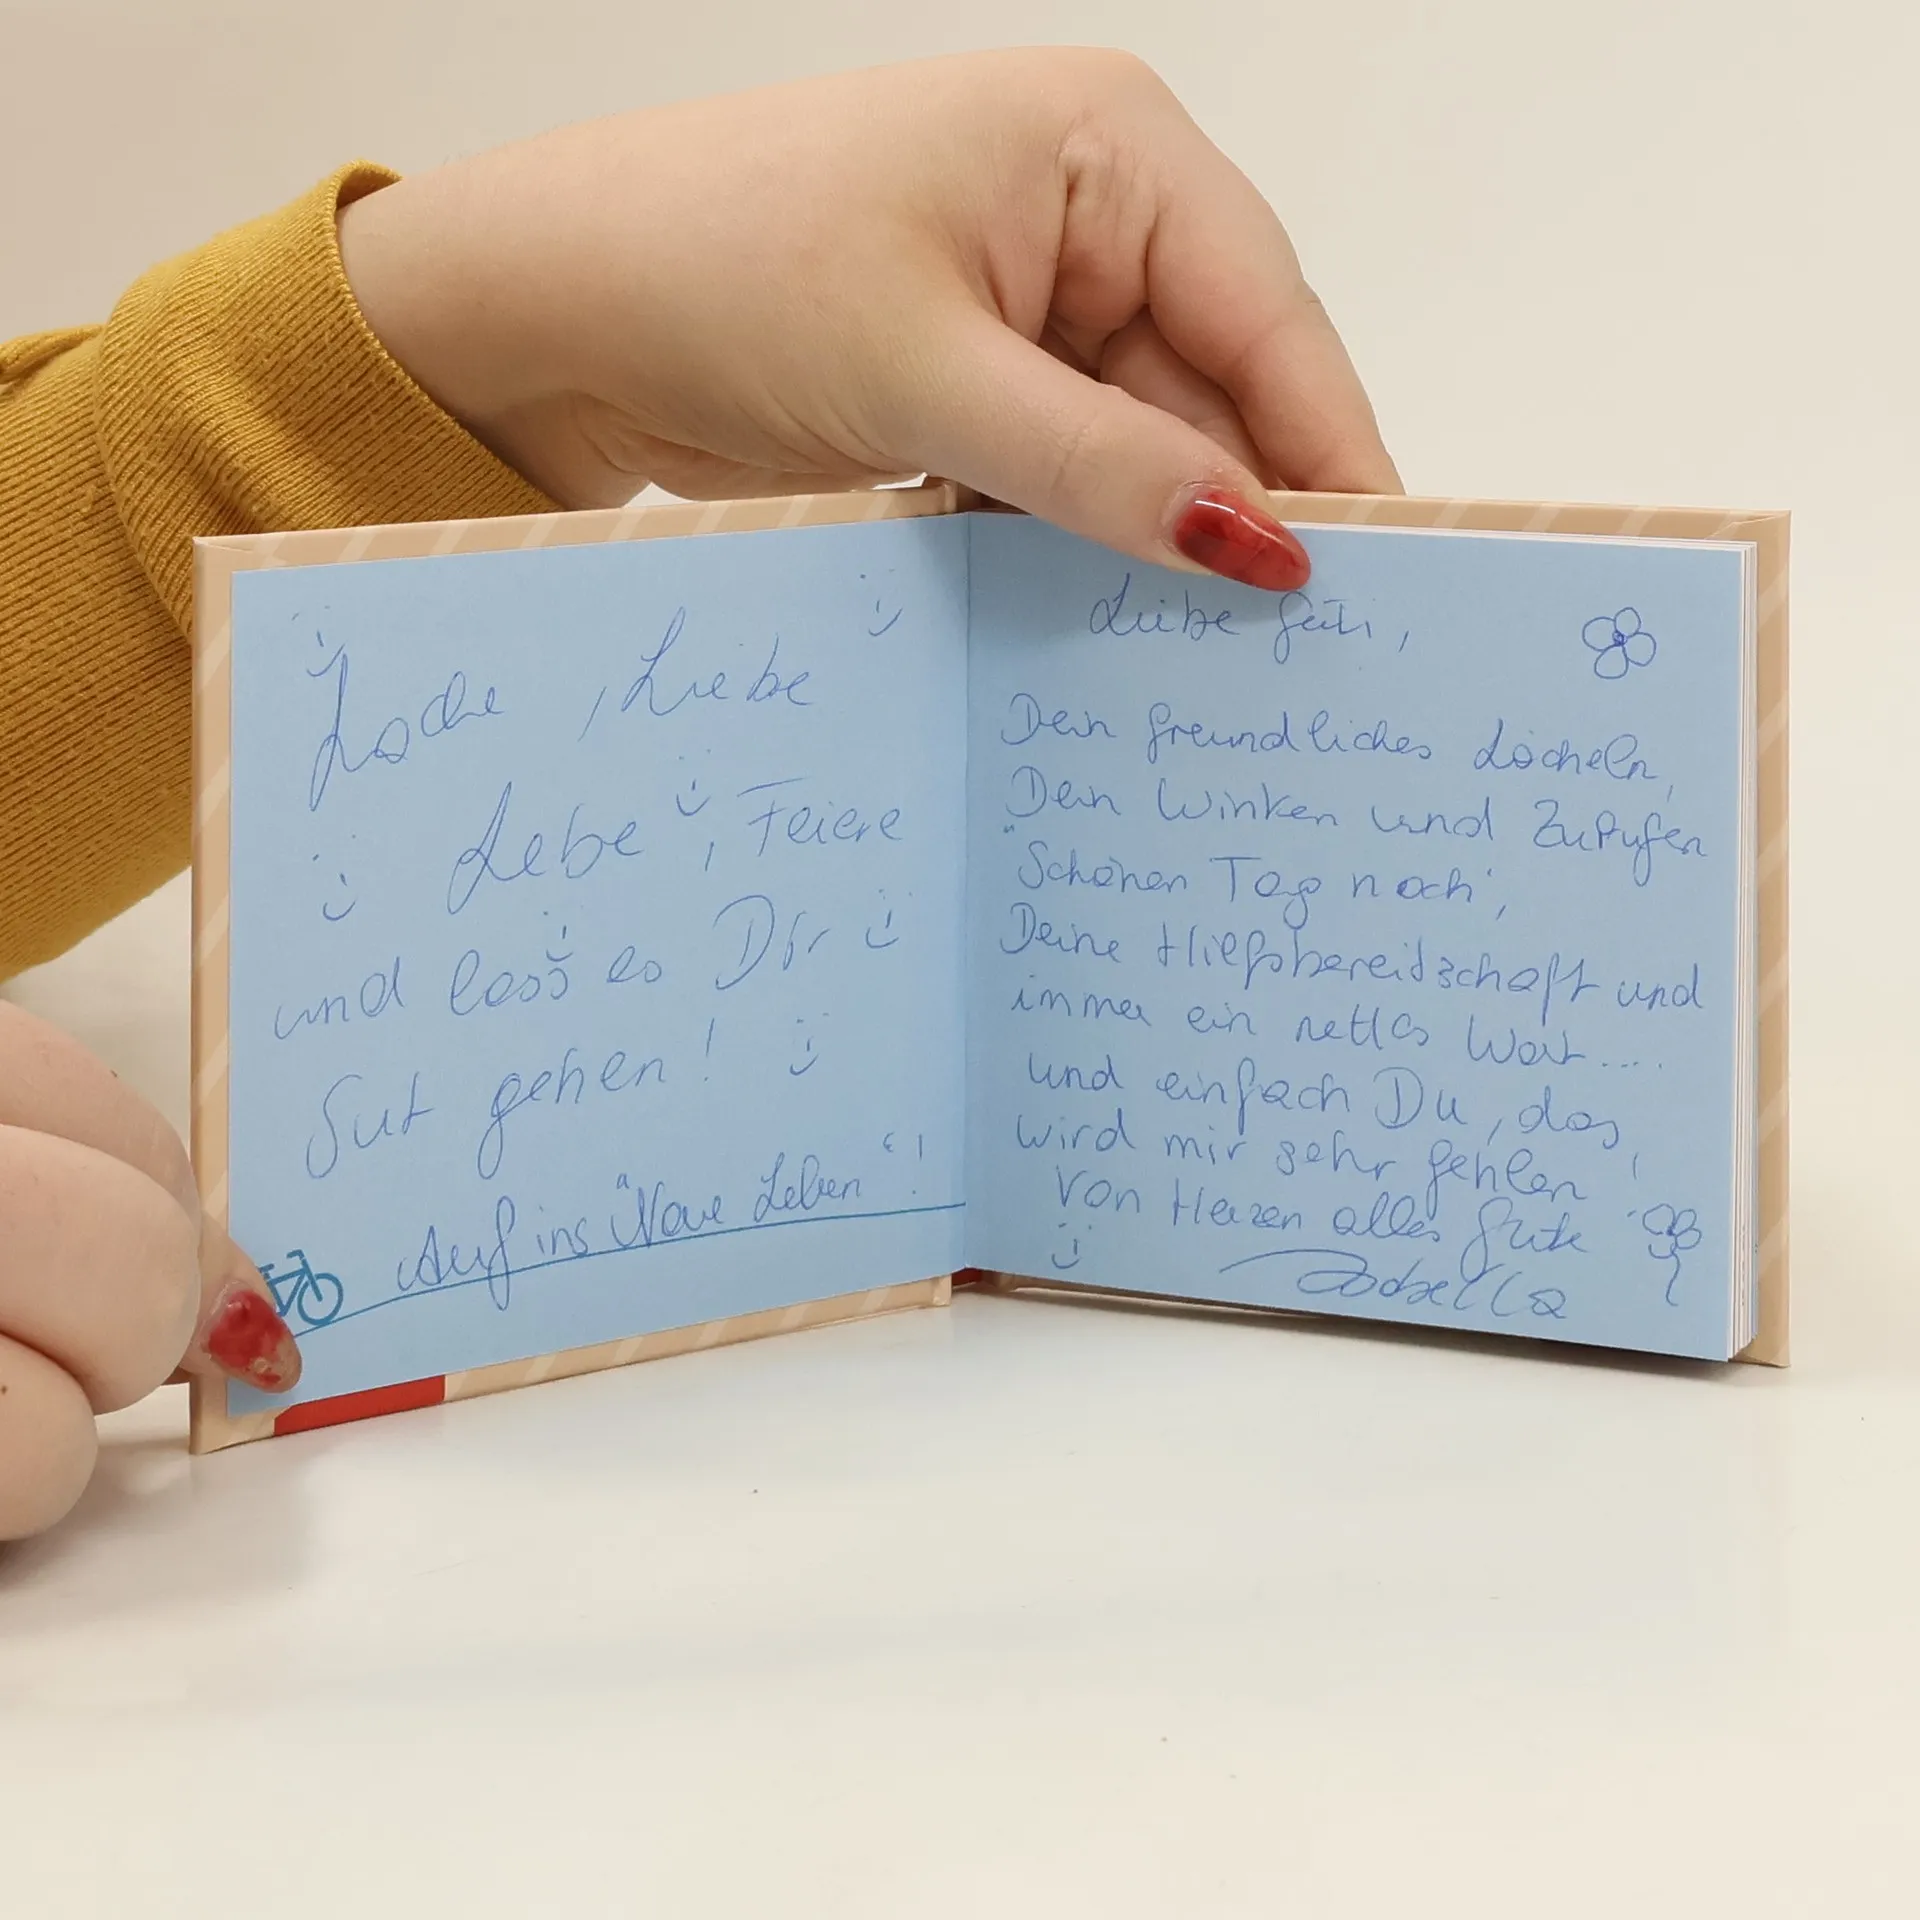 Lache, Liebe
Lebe, Feiere
und lass es Dir
Gut gehen!
Auf ins "Neue Leben"!
Liebe Gitti,
Dein freundliches Lächeln,
Dein Winken und Zurufen
"Schönen Tag noch",
Deine Hilfsbereitschaft und
immer ein nettes Wort....
und einfach Du, das
wird mir sehr fehlen!
Von Herzen alles Gute